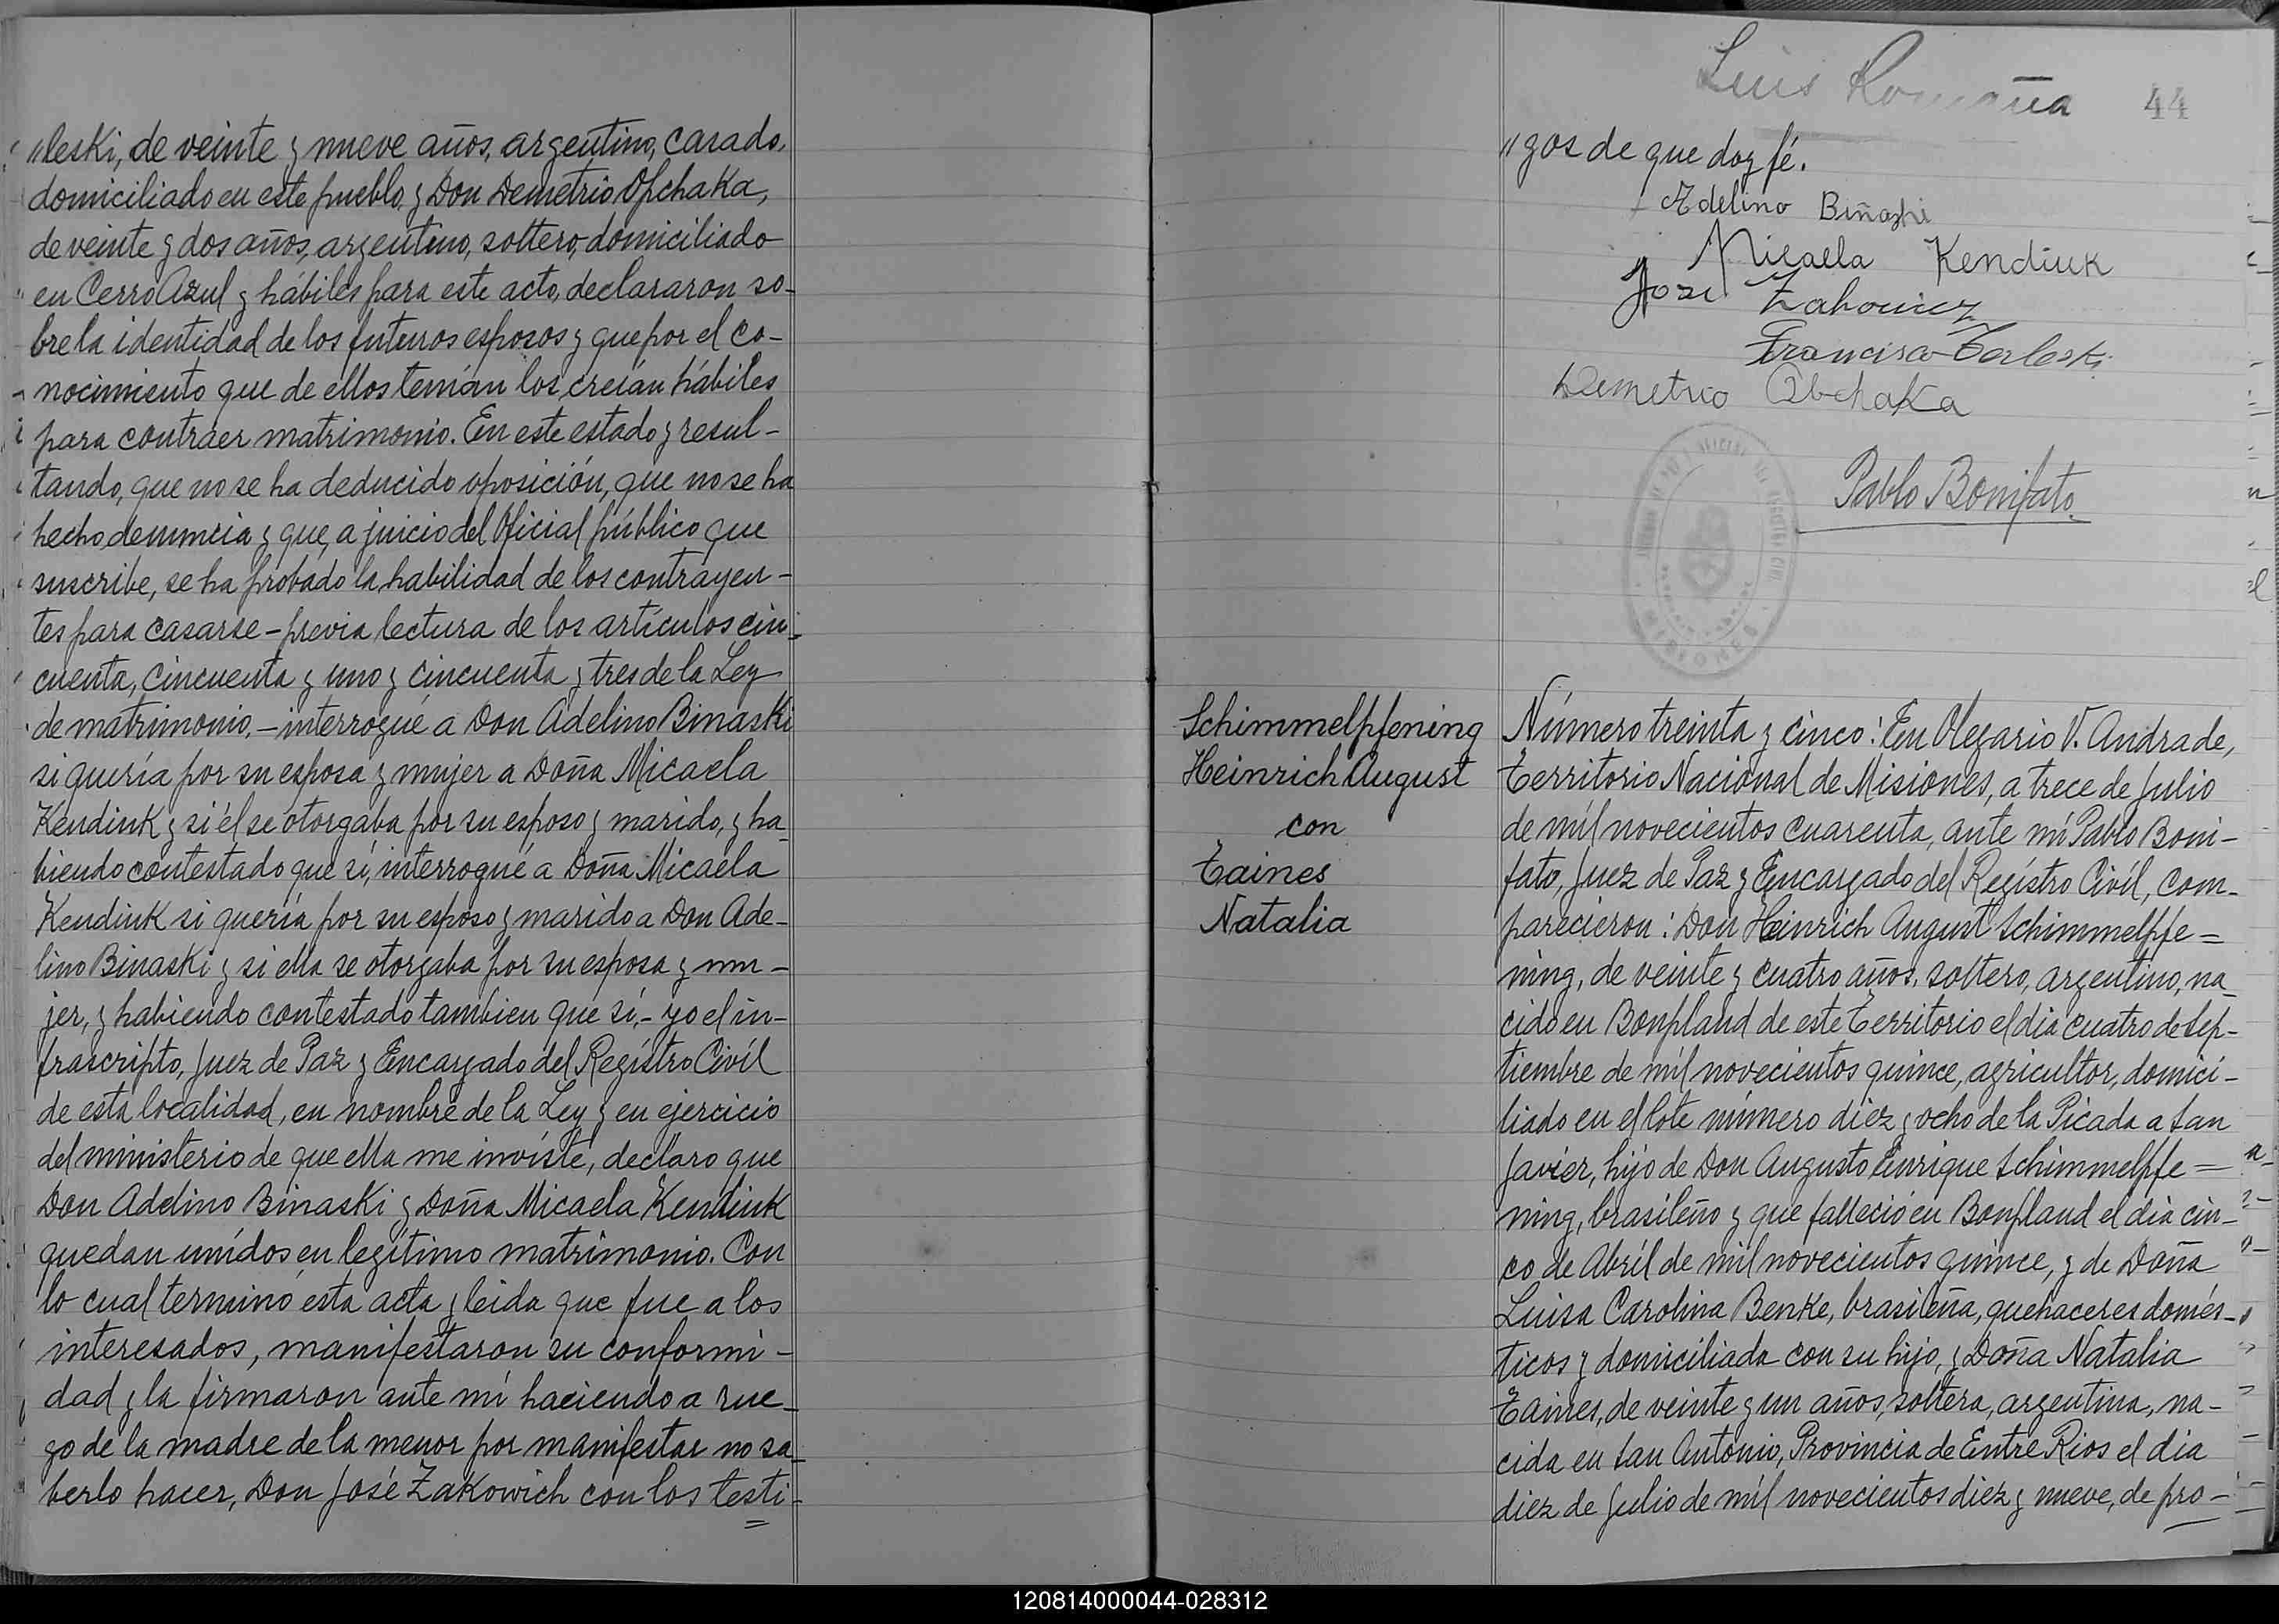 "leski, de veinte y nueve años, argentino, casado,
domiciliado en este pueblo y Don Demetrio Opchaka,
de veinte y dos años, argentino, soltero, domiciliado
en Cerro Azul y hábiles para este acto, declararon so-
bre la identidad de los futuros esposos y que por el co-
nocimiento que de ellos tenían los creían hábiles
para contraer matrimonio. En este estado y resul-
tando, que no se ha deducido oposición, que no se ha
hecho denuncia y que, a juicio del Oficial público que
suscribe, se ha probado la habilidad de los contrayen-
tes para casarse - previa lectura de los artículos cin-
cuenta, cincuenta y uno y cincuenta y tres de la Ley
de matrimonio, - interrogué a Don Adelino Binaski
si quería por su esposa y mujer a Doña Micaela
Kendiuk y si él se otorgaba por su esposo y marido, y ha-
biendo contestado que sí, interrogué a Doña Micaela
Kendiuk si quería por su esposo y marido a Don Ade-
lino Binaski y si ella se otorgaba por su esposa y mu-
jer, y habiendo contestado tambien que sí, - yo el in-
frascripto, Juez de Paz y Encargado del Regístro Civíl
de esta localidad, en nombre de la Ley y en ejercicio
del ministerio de que ella me invíste, declaro que
Don Adelino Binaski y Doña Micaela Kendiuk
quedan unídos en legítimo matrimonio. Con
lo cual terminó esta acta y leida que fue a los
interesados, manifestaron su conformi-
dad y la firmaron ante mí haciendo a rue-
go de la madre de la menor por manifestar no sa-
berlo hacer, Don José Zakowich con los testi-
Luis Romaña 44
"gos de que doy fé.
Adelino Biñaski
Micaela Kendiuk
José Zakowicz
Francisco Terleski
Demetrio Obchaka
Pablo Bonifato
MISIONES
Schimmelpfening
Heinrich August
con
Taines
Natalia
Número treinta y cinco: En Olegario V. Andrade,
Territorio Nacional de Misiones, a trece de Julio
de míl novecientos cuarenta, ante mí Pablo Boni-
fato, Juez de Paz y Encargado del Regístro Civíl, com-
parecieron: Don Heinrich August Schimmelpfe=
ning, de veinte y cuatro años, soltero, argentino, na-
cido en Bonpland de este Territorio el dia cuatro de Sep-
tiembre de míl novecientos quince, agricultor, domici-
liado en el lote número diez y ocho de la Picada a San
Javier, hijo de Don Augusto Enrique Schimmelpfe=
ning, brasileño y que falleció en Bonpland el dia cin-
co de Abríl de míl novecientos quince, y de Doña
Luisa Carolina Benke, brasileña, quehaceres domés-
ticos y domiciliada con su hijo, y Doña Natalia
Taines, de veinte y un años, soltera, argentina, na-
cida en San Antonio, Provincia de Entre Rios el dia
diez de Julio de míl novecientos diez y nueve, de pro-
120814000044-028312